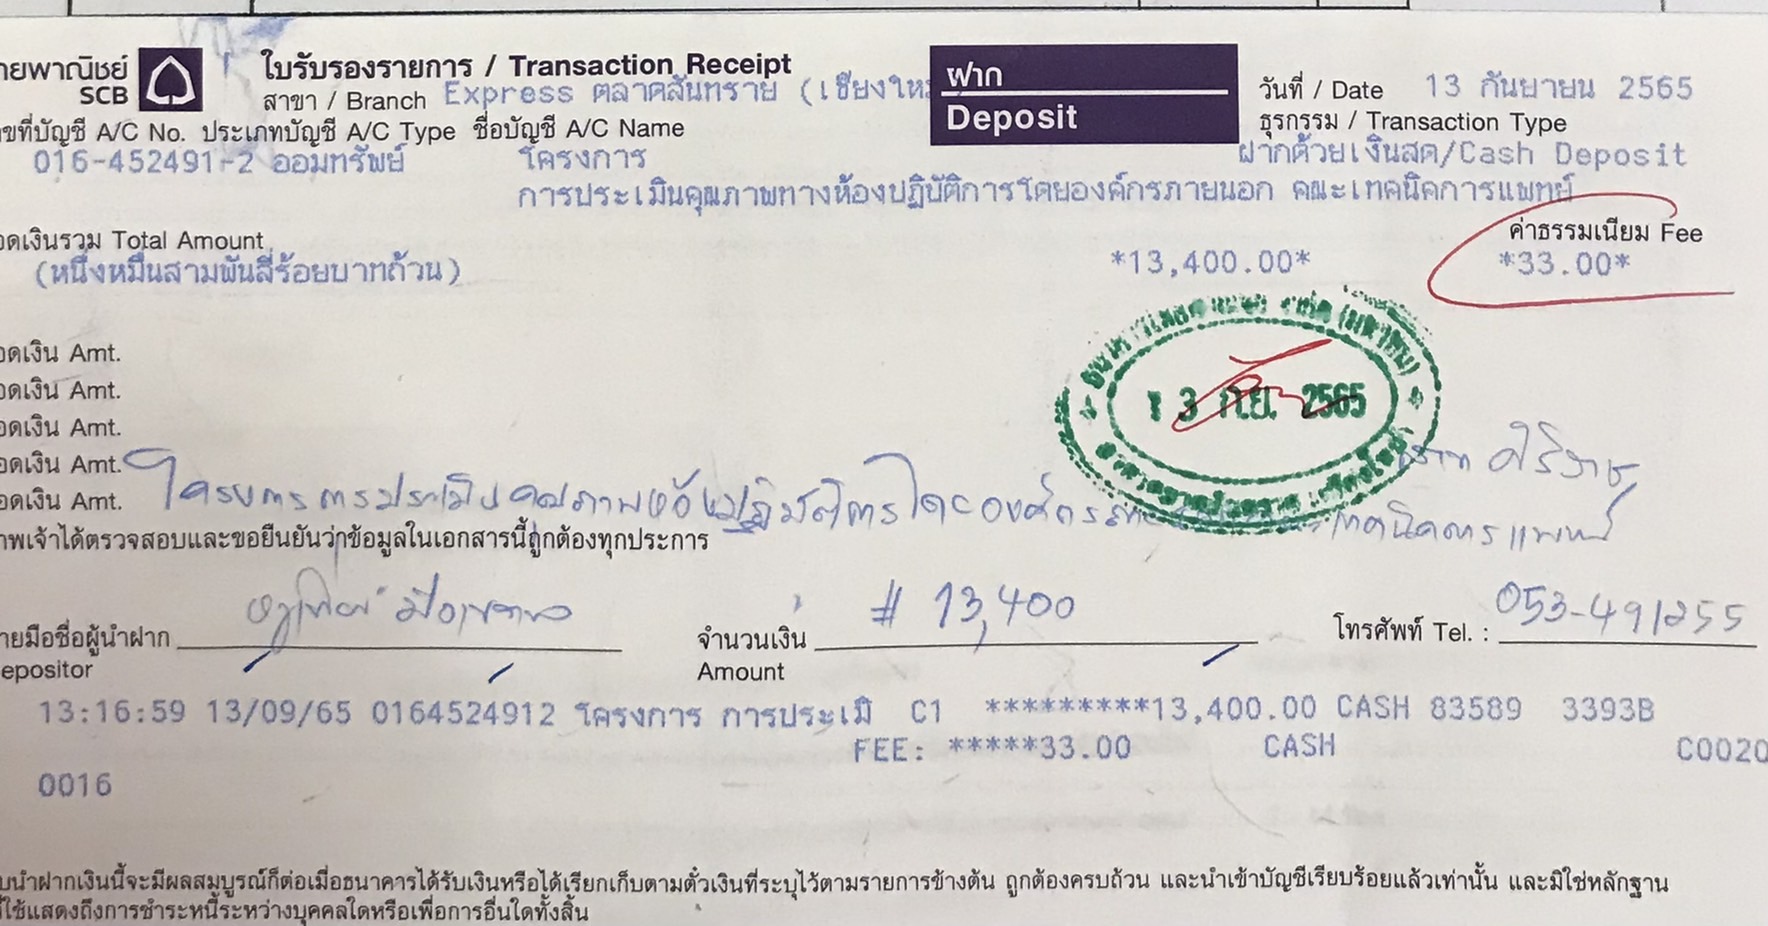 ายพาณิชย์
SCB
ใบรับรองรายการ / Transaction Receipt
สาขา / Branch Express ตลาดสันทราย (เชียงให
ฝาก
Deposit
วันที่ / Date 13 กันยายน 2565
ขที่บัญชี A/C No. ประเภทบัญชี A/C Type ชื่อบัญชี A/C Name
ธุรกรรม / Transaction Type
016-452491-2 ออมทรัพย์ โครงการ
ฝากด้วยเงินสด/Cash Deposit
การประเมินคุณภาพทางห้องปฏิบัติการโดยองค์กรภายนอก คณะเทคนิคการแพทย์
อดเงินรวม Total Amount
ค่าธรรมเนียม Fee
(หนึ่งหมื่นสามพันสี่ร้อยบาทถ้วน) *13,400.00* *33.00*
อดเงิน Amt.
อดเงิน Amt.
อดเงิน Amt.
อดเงิน Amt.
อดเงิน Amt.
13 ก.ย. 2565
ศิริราช
โครงการการประเมินคุณภาพห้องปฏิบัติการโดยองค์กร เทคนิคการแพทย์
าพเจ้าได้ตรวจสอบและขอยืนยันว่าข้อมูลในเอกสารนี้ถูกต้องทุกประการ
ายมือชื่อผู้นำฝาก
epositor
จำนวนเงิน # 13,400
Amount
โทรศัพท์ Tel. : 053-491255
13:16:59 13/09/65 0164524912 โครงการ การประเมิ C1 *********13,400.00 CASH 83589 3393B
FEE: *****33.00 CASH C0020
0016
บนำฝากเงินนี้จะมีผลสมบูรณ์ก็ต่อเมื่อธนาคารได้รับเงินหรือได้เรียกเก็บตามตั๋วเงินที่ระบุไว้ตามรายการข้างต้น ถูกต้องครบถ้วน และนำเข้าบัญชีเรียบร้อยแล้วเท่านั้น และมิใช่หลักฐาน
ี่ใช้แสดงถึงการชำระหนี้ระหว่างบุคคลใดหรือเพื่อการอื่นใดทั้งสิ้น